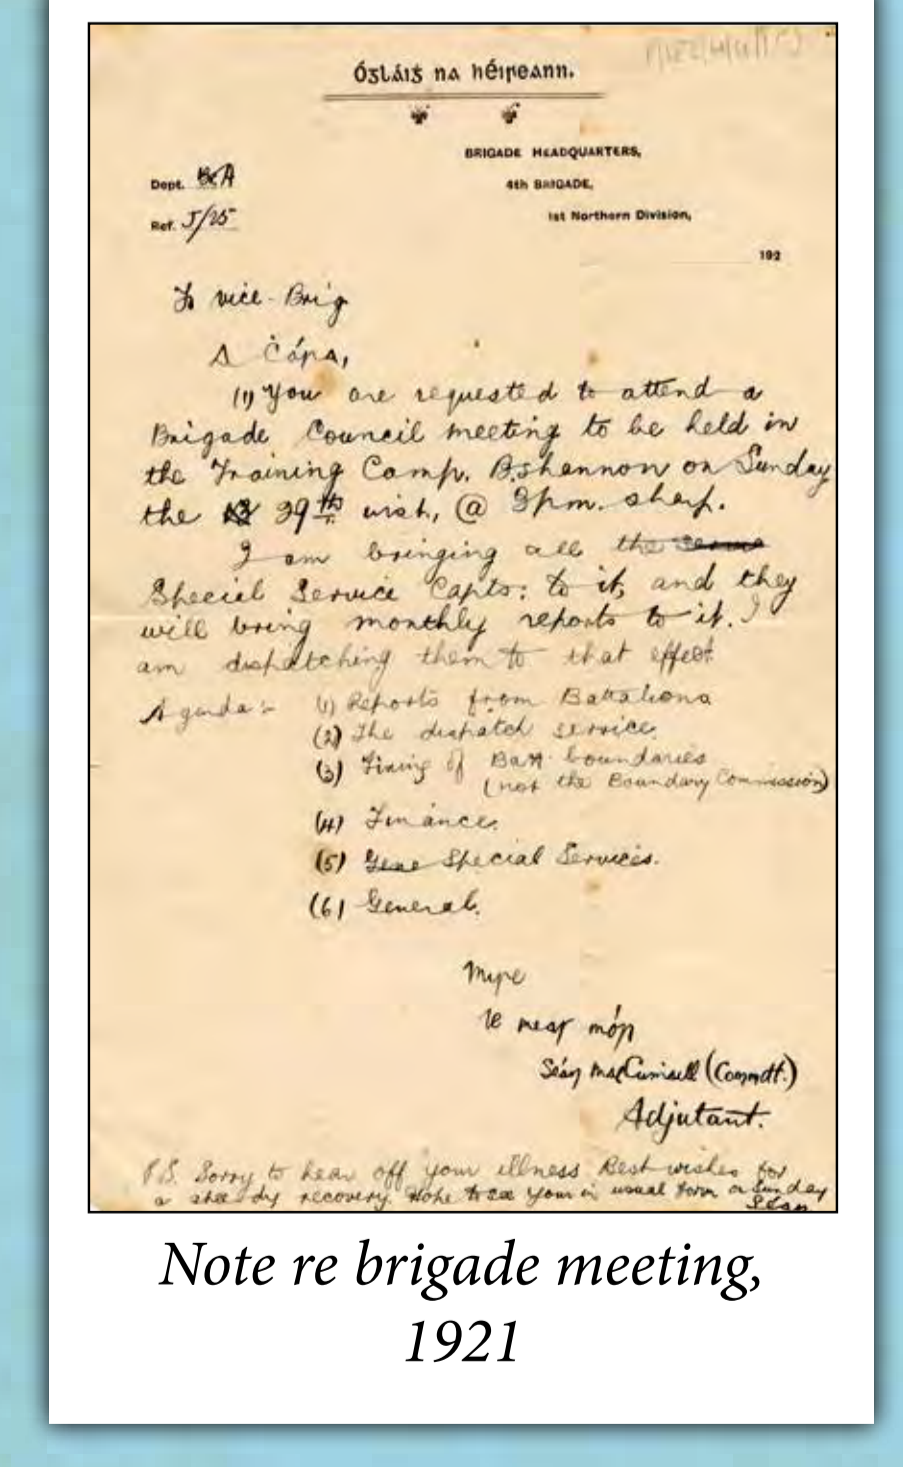 Óglaiġ na hÉireann.
BRIGADE HEADQUARTERS,
4th BRIGADE,
1st Northern Division,
Dept. A
Ref. J/25
192
To Vice-Brig
A Ċara,
(1) You are requested to attend a
Brigade Council meeting to be held in
the Training Camp. B.shannon on Sunday
the 29th inst, @ 3pm. sharp.
I am bringing all the
Special Service Capts: to it, and they
will bring monthly reports to it. I
am dispatching them to that effect
Agenda:- (1) Reports from Battalions
(2) The dispatch service.
(3) Fixing of Batt. boundaries
(not the Boundary Commission)
(4) Finance.
(5) Gene Special Services.
(6) General.
Mise
le meas mór
Seán (Commdt.)
Adjutant.
P.S. Sorry to hear off your illness Best wishes for
a speedy recovery. Hope to see you in usual form on Sunday
Seán
Note re brigade meeting,
1921